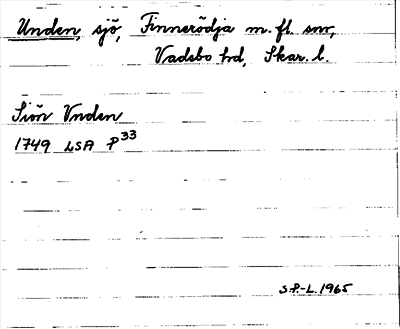 Unden, sjö, Finnerödja m. fl. snr,
Vadsbo hd, Skar. l.
Siön Vnden
1749 LSA P33
S.P.-L. 1965